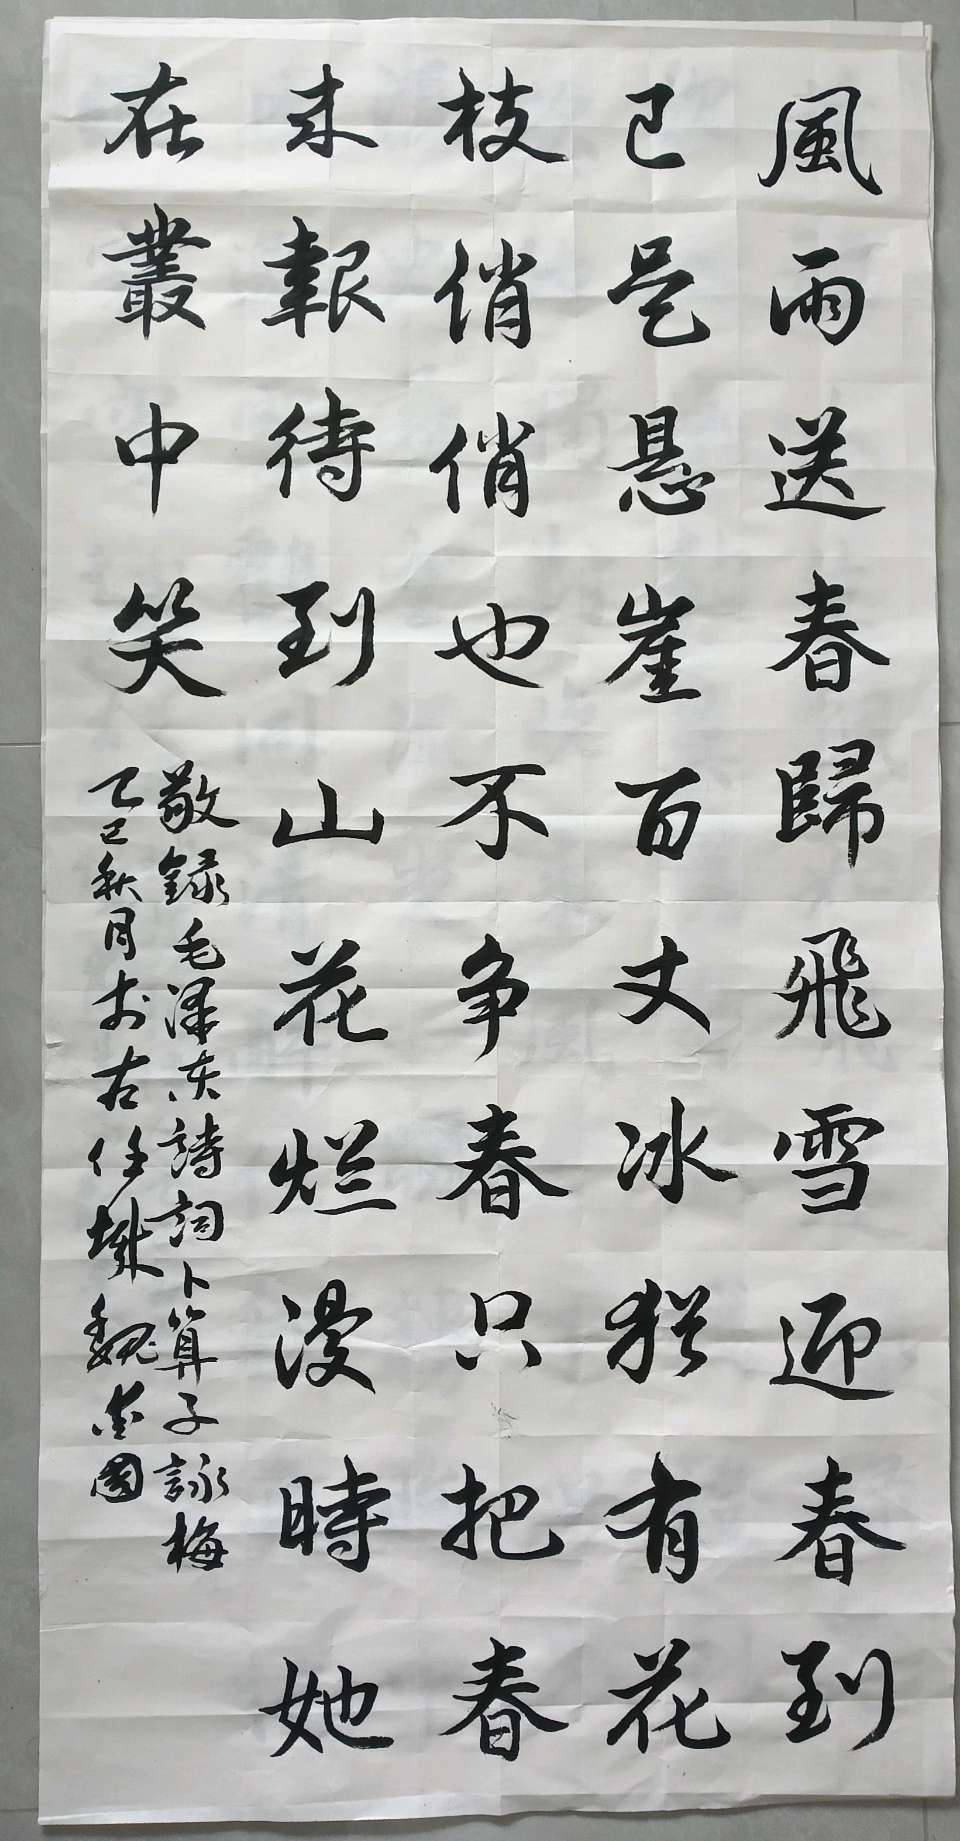 風雨送春歸飛雪迎春到
已是悬崖百丈冰猶有花
枝俏俏也不争春只把春
来報待到山花烂漫時她
在叢中笑
敬録毛澤东詩詞卜算子詠梅
乙巳秋月於古任城魏國